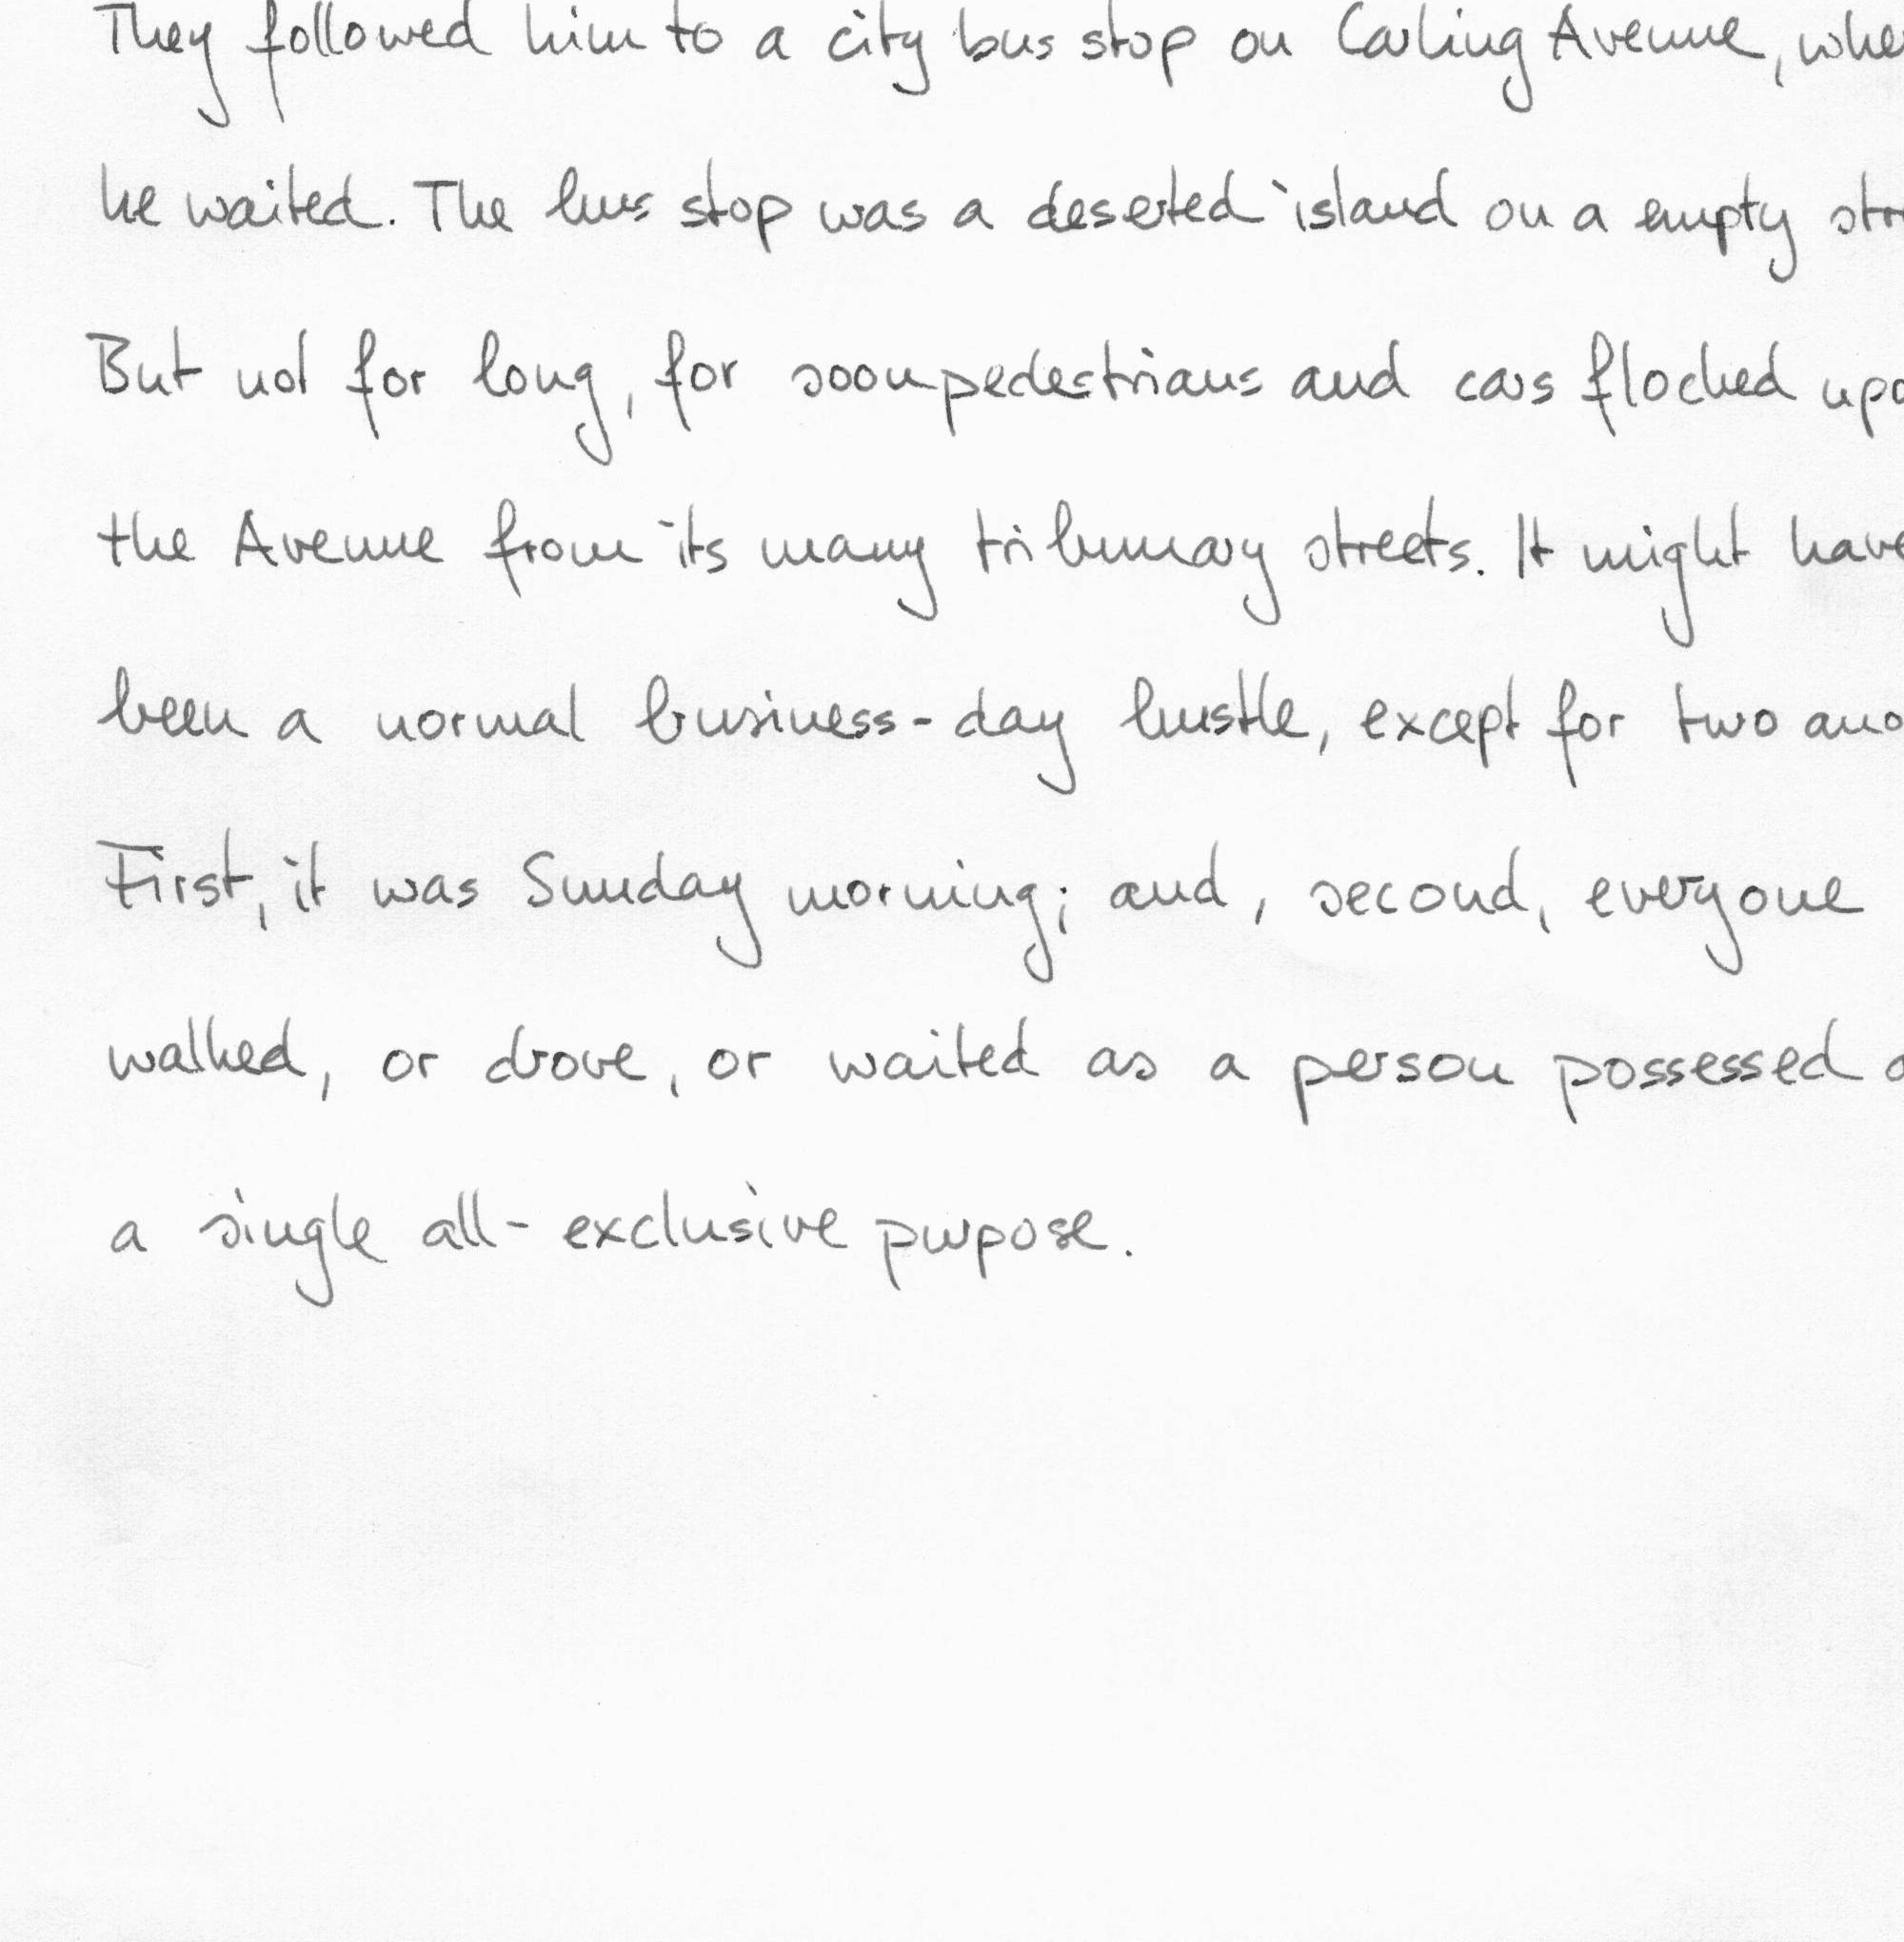 They followed him to a city bus stop on Carling Avenue, whe
he waited. The bus stop was a deserted island on a empty str
But not for long, for soon pedestrians and cars flocked upo
the Avenue from its many tribunary streets. It might have
been a normal business-day bustle, except for two ano
First, it was Sunday morning; and, second, everyone
walked, or drove, or waited as a person possessed o
a single all-exclusive purpose.